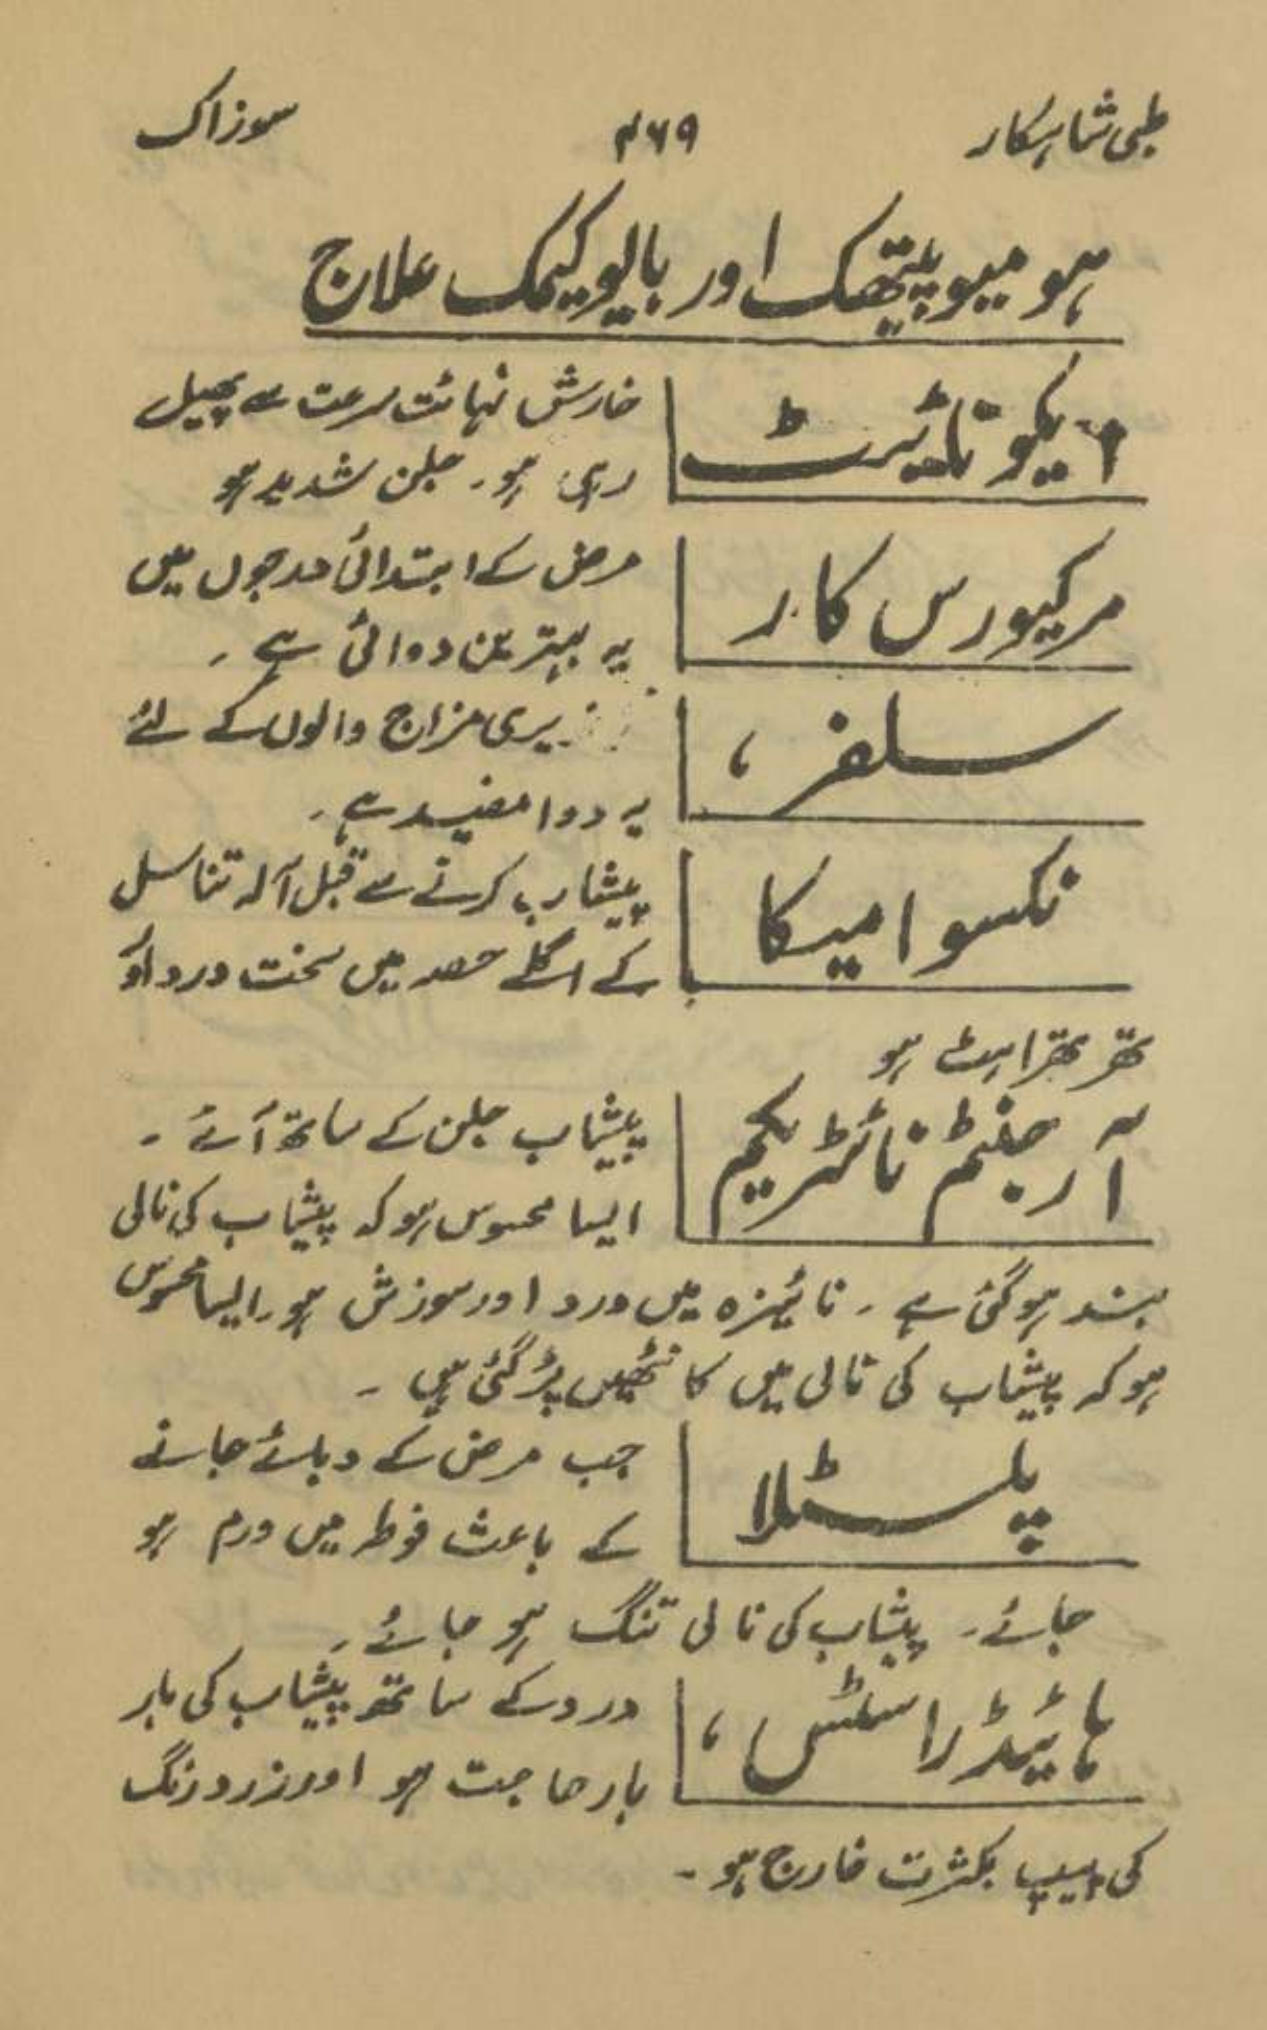 طبی شاہکار ۴۶۹ سوزاک
ہومیوپیتھک اور بایوکیمک علاج
ایکونائیٹ خارش نہائت سرعت سے پھیل
رہی ہو۔ جلن شدید ہو
مرکیورس کار مرض کے ابتدائی درجوں میں
یہ بہترین دوائی ہے۔
سلفر، مزاج والوں کے لئے
یہ دوا مفید ہے۔
نکسوامیکا پیشاب کرنے سے قبل آلہ تناسل
کے اگلے حصہ میں سخت درد اور
تھرتھراہٹ ہو
آرجنٹم نائٹریکم پیشاب جلن کے ساتھ آئے۔
ایسا محسوس ہو کہ پیشاب کی نالی
بند ہو گئی ہے۔ نائیزہ میں درد اور سوزش ہو۔ ایسا محسوس
ہو کہ پیشاب کی نالی میں گانٹھیں پڑ گئی ہیں۔
پلسٹلا جب مرض کے دبائے جانے
کے باعث فوطہ میں ورم ہو
جائے۔ پیشاب کی نالی تنگ ہو جائے۔
ہائیڈراسٹس، درد کے ساتھ پیشاب کی بار
بار حاجت ہو اور زرد رنگ
کی پیپ بکثرت خارج ہو۔